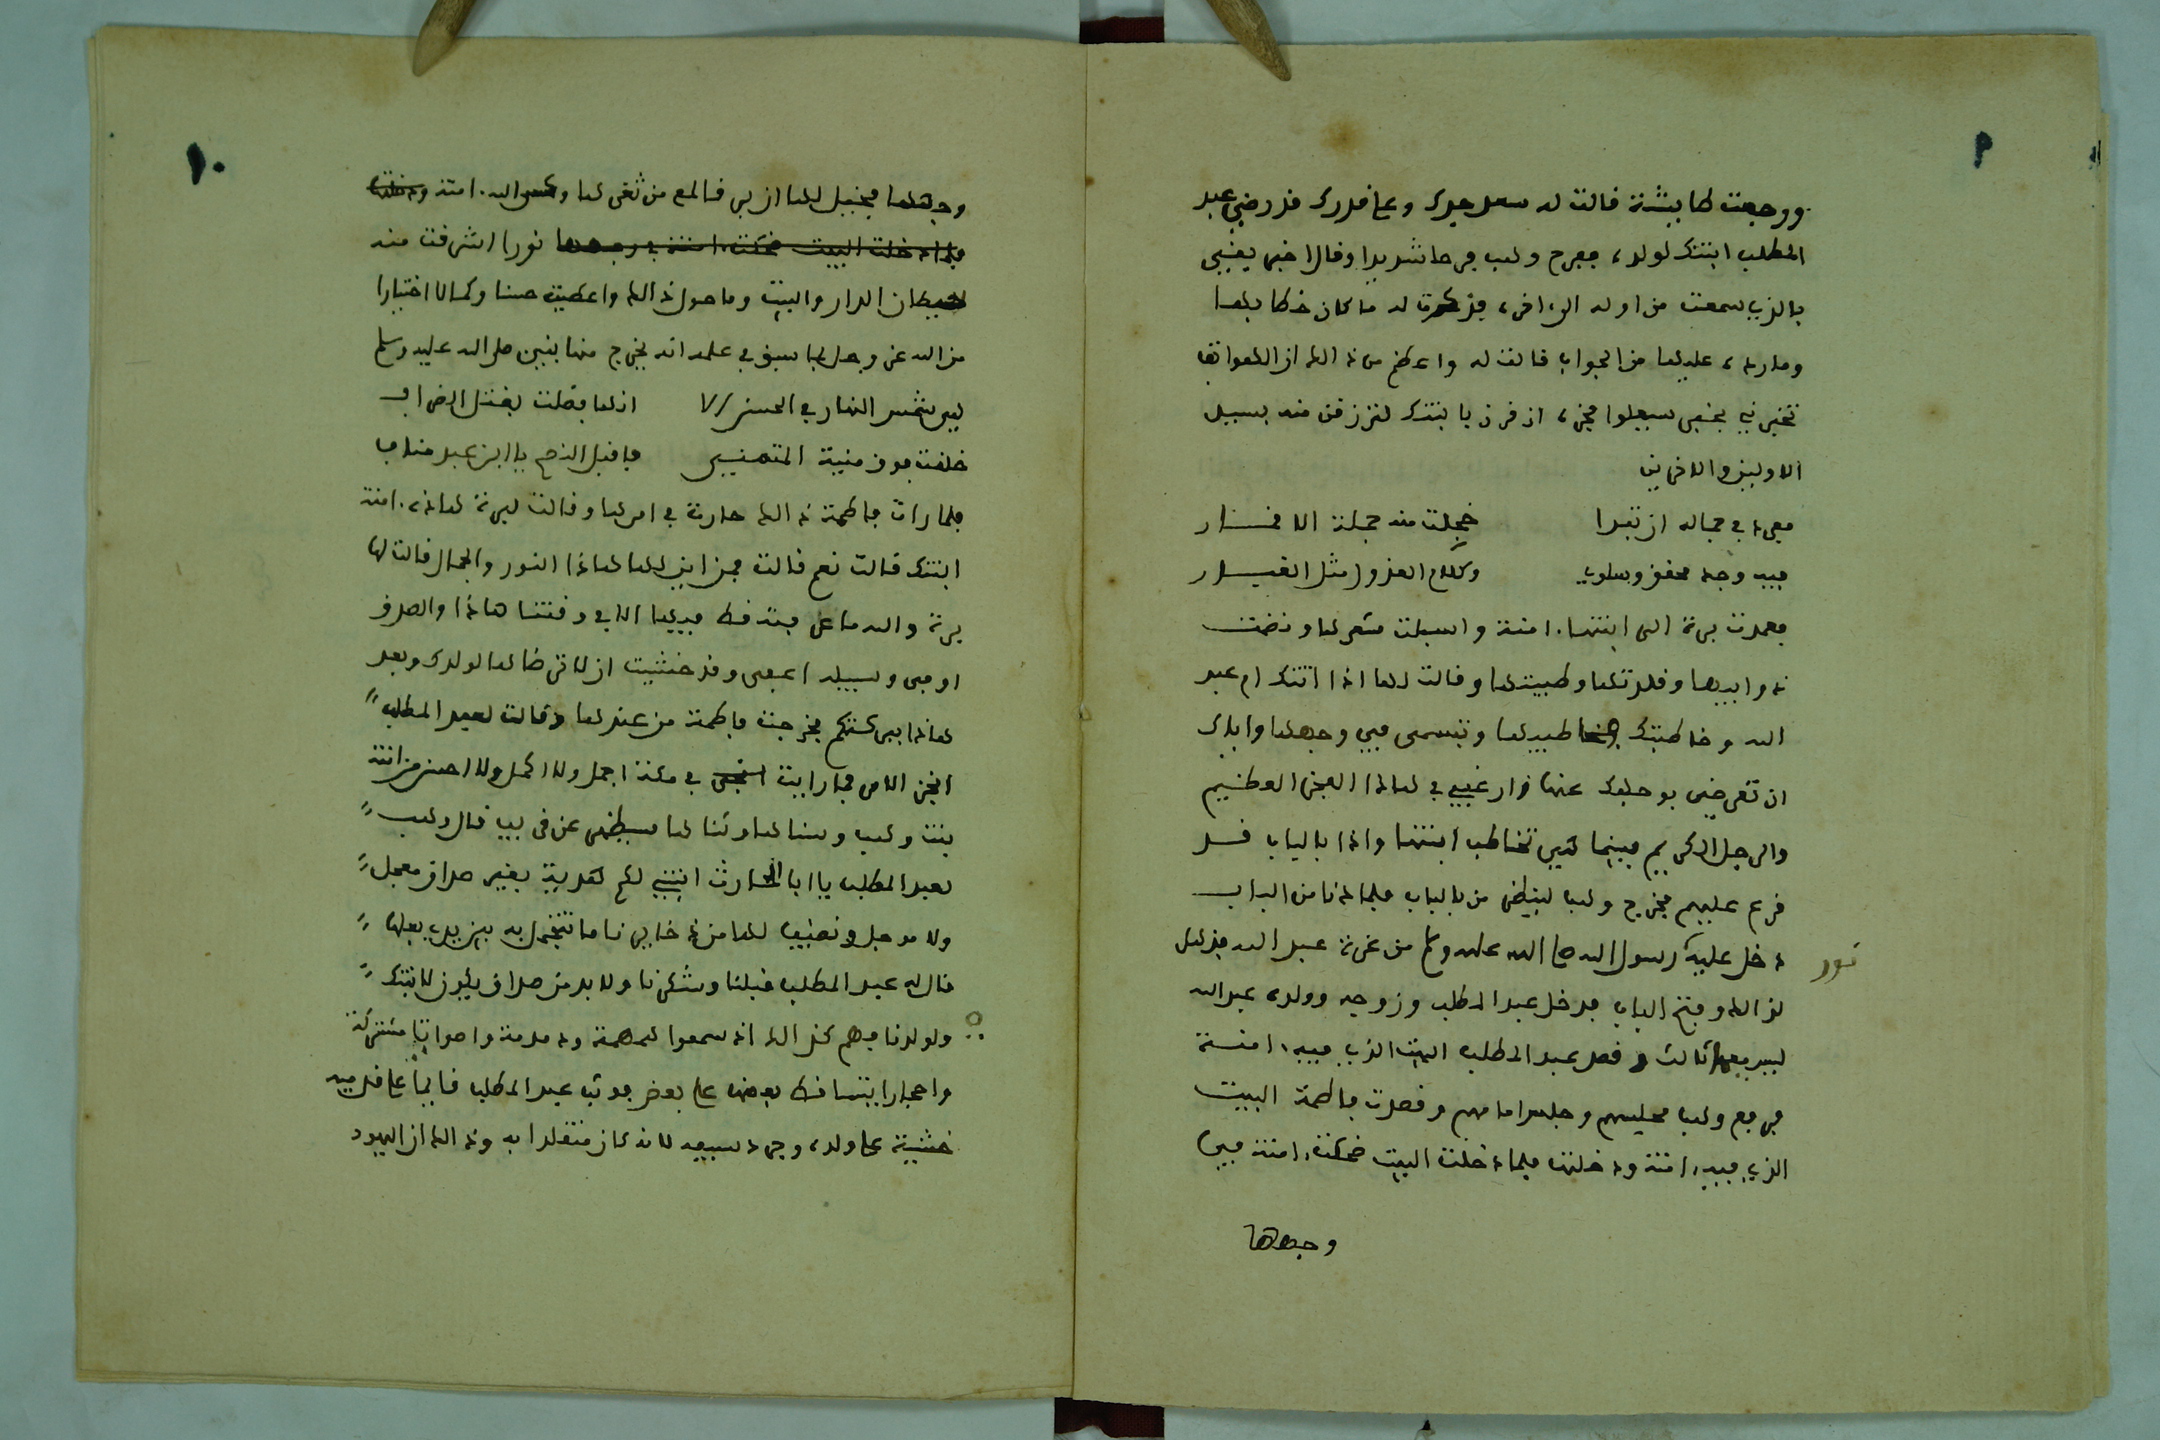 ٩
ورجعت كابشة فالت له سعد جدك وعلا فدرك فد رضي عبد
المطلب ابنتك لولده بفرح وهب فرحا شديدا وفال اخبريني
بالذي سمعت من اوله الى اخره فذكرت له ما كان خطابها
وما رده عليها من الجواب فالت له واعظم من ذالك ان الهواتف
تخبرني بخبر سيهلوا فجره ان فرن بابنتك لترزفن منه بسيد
الاولين والاخرين
فمره في جماله ان تبدا خجلت منه جملة الافمار
فيه وجد محفق وسلوي وكلام العذول مثل الفيار
فعمدت برة الى ابنتها ءامنة واسبلت شعرها وضمت
ذوايبها وفلدتها وطيبتها وفالت لها اذا اتتك ام عبد
الله وخاطبتك طيبها وتبسمي في وجهها واياك
ان تعرضي بوجهك عنها وارغبي في هاذا الفخر العظيم
والرجل الكريم فبينما هي تخاطب ابنتها واذا بالباب فد
فرع عليهم فخرج وهب لينظر من بالباب فلما دنا من الباب
دخل عليه نور رسول الله صلى الله عليه وسلم من غرة عبد الله فذهل
لذالك وفتح الباب فدخل عبد المطلب وزوجه وولده عبد الله
ليس معهم ثالث وفصد عبد المطلب البيت الذي فيه ءامنة
فرفع وهب مجلسهم وجلس امامهم وفصدت فاطمة البيت
الذي فيه ءامنة ودخلت فلما دخلت البيت ضحكت ءامنة في
وجهها
١٠
وجهها فخيل لها ان برق فالمع من ثغرها ءامنة
فلما دخلت البيت ضحكت ءامنة في وجهها نورا اشرفت منه
حيطان الدار والبيت وما حول ذالك واعطيت حسنا وكمالا اختيارا
من الله عز وجل لما سبق في علمه انه يخرج منها نبين صلى الله عليه وسلم
ليس شمس النهار في الحسن الا انها فضلت بفتل الضراب
خلفت فوق منية المتمني فافبل النصح يا ابن عبد مناب
فلما رات فاطمة ذالك حارت في امرها وفالت لبرة هاذه ءامنة
ابنتك فالت نعم فالت فمن اين لها هاذا النور والجمال فالت لها
برة والله ما عرفته فط فيها الا في وفتنا هاذا والصدف
اوفى وسبيله اعفى وفد خشيت ان لا ترضاها لولدك وبعد
هاذا ببركتكم فخرجت فاطمة من عندها وفالت لعبد المطلب
انجز الامر فما رايت في مكة اجمل ولا اكمل ولا احسن من ءامنة
بنت وهب وسناها وثناها سيظهر عن فريب فال وهب
لعبد المطلب يا ابا الحارث ابنتي لكم هدية بغير صداق معجل
ولا موجل ونضيف لها من ذخايرنا ما تتجمل به بين يدي بعلها
فال له عبد المطلب فبلنا وشكرنا ولا بد من صداق يكون لابنتك
ولولدنا فبهم كذالك اذ سمعوا همهمة ودمدمة واصواتا مشتركة
واحجارا يتسافط بعضها على بعض فوثب عبد المطلب فايما على فدميه
خشية على ولده وجرد سيفه لانه كان متفلدا به وذالك ان اليهود